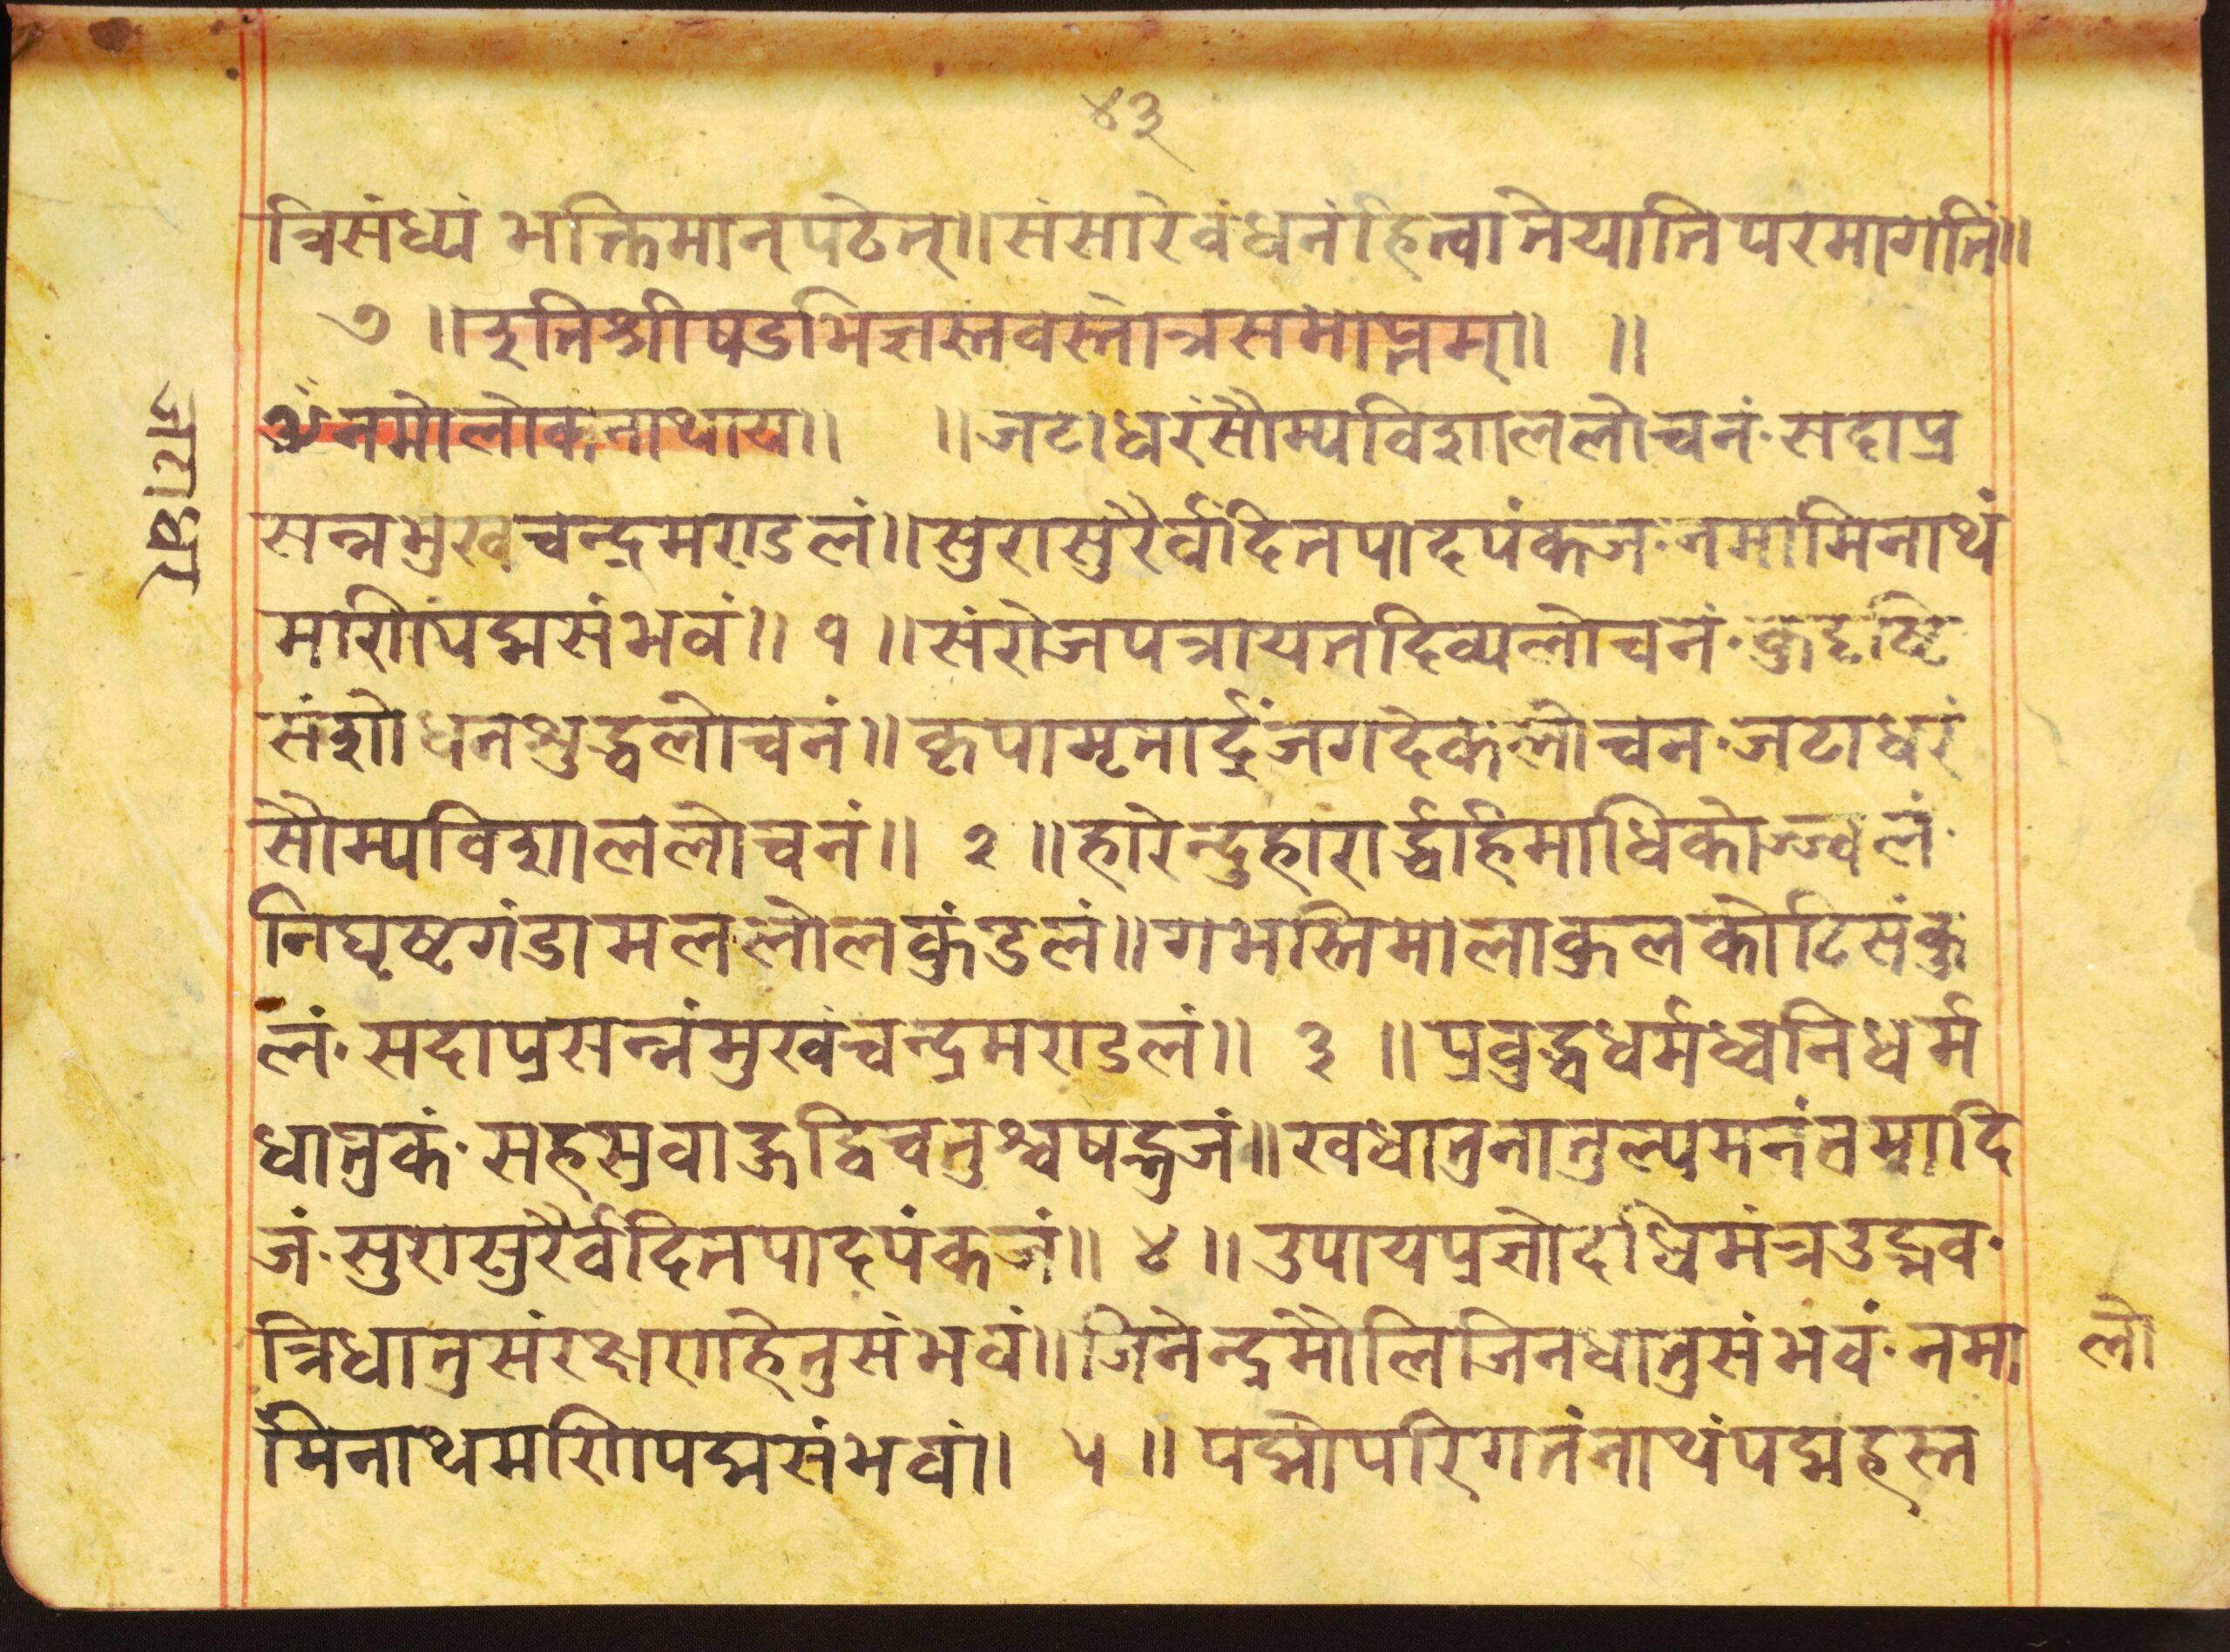 ४३
त्रिसंध्यं भक्तिमान्पठेत्॥संसारेवंधनंहित्वातेयातिपरमागतिं॥
७ ॥इतिश्रीषडभिज्ञस्तवस्तोत्रसमाप्तम्॥ ॥
ॐनमोलोकनाथाय॥ ॥जटाधरंसौम्यविशाललोचनं·सदाप्र
सन्नमुखचन्द्रमण्डलं॥सुरासुरैर्वंदितपादपंकज·नमामिनाथं
मणिपद्मसंभवं॥ १ ॥संरोजपत्रायतदिव्यलोचनं·कुदृष्टि
संशोधनशुद्धलोचनं॥कृपामृतार्द्रंजगदेकलोचन·जटाधरं
सौम्यविशाललोचनं॥ २ ॥हारेन्दुहारार्द्धहिमाधिकोज्ज्वलं·
निघृष्टगंडामललोलकुंडलं॥गभस्तिमालाकुलकोटिसंकु
लं·सदाप्रसन्नंमुखचन्द्रमण्डलं॥ ३ ॥प्रवुद्धधर्मध्वनिधर्म
धातुकं·सहस्रवाहुद्विचतुश्चषद्भुजं॥खधातुनातुल्यमनंतमादि
जं·सुरासुरैर्वंदितपादपंकजं॥ ४ ॥उपायप्रज्ञोदधिमंत्रउद्भव·
त्रिधातुसंरक्षणहेतुसंभवं॥जिनेन्द्रमौलिजिनधातुसंभवं·नमा
मिनाथमणिपद्मसंभवं॥ ५ ॥पद्मोपरिगतंनाथंपद्महस्त
जटाधर
लो